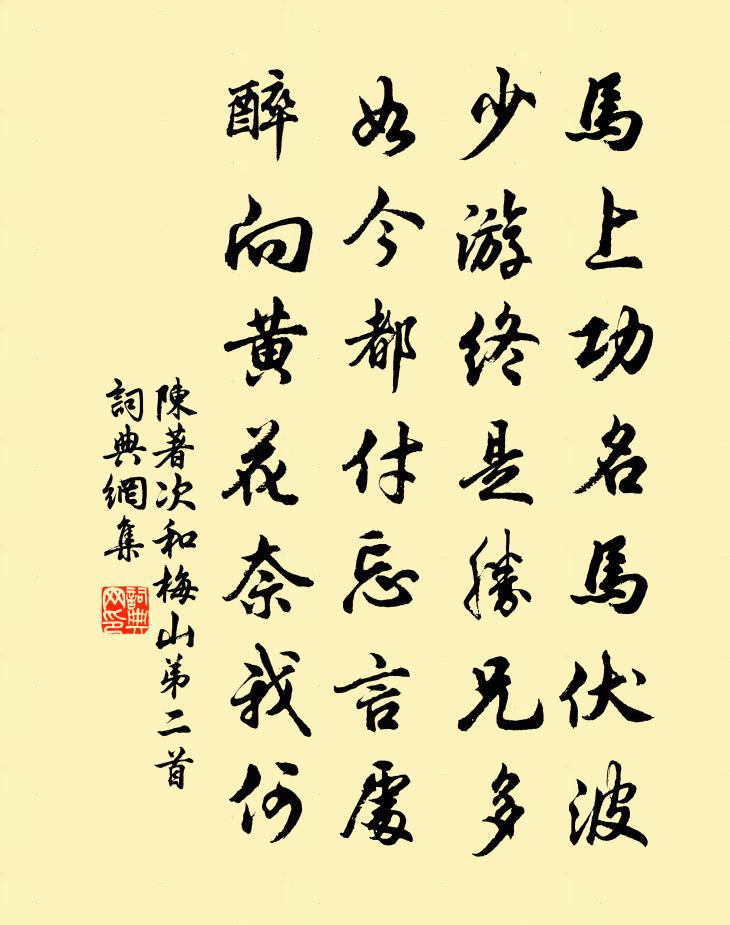 馬上功名馬伏波
少游終是勝兄多
如今都付忘言處
醉向黃花奈我何
陳著次和梅山弟二首
詞典網集
詞典網印